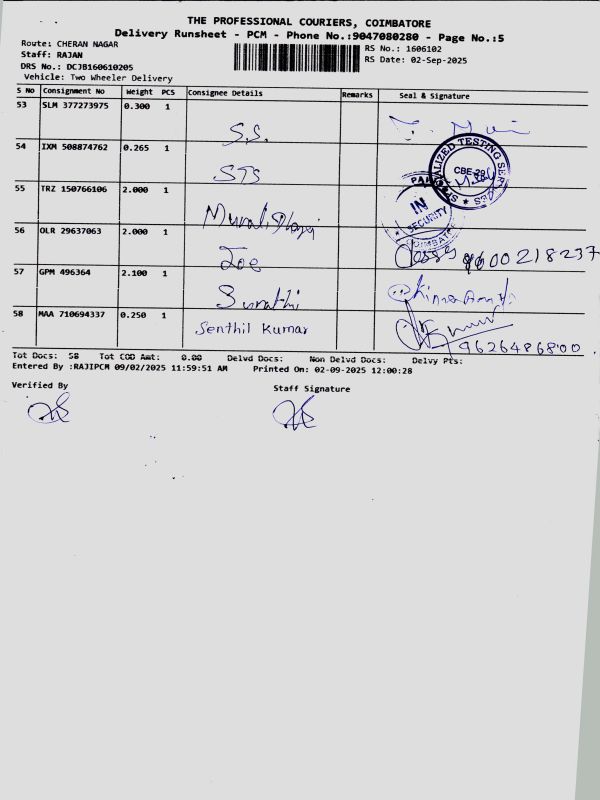 THE PROFESSIONAL COURIERS, COIMBATORE
Delivery Runsheet - PCM - Phone No.:9047080280 - Page No.:5
Route: CHERAN NAGAR
RS No.: 1606102
Staff: RAJAN
RS Date: 02-Sep-2025
DRS No.: DCJB160610205
Vehicle: Two Wheeler Delivery
S No Consignment No Weight PCS Consignee Details Remarks Seal & Signature
53 SLM 377273975 0.300 1 S.S.
54 IXM 508874762 0.265 1 STS
SPECIALIZED TESTING SERVICES
CBE-29
55 TRZ 150766106 2.000 1 Murali
IN
SECURITY
COIMBATORE
56 OLR 29637063 2.000 1 Joe 9600218237
57 GPM 496364 2.100 1
58 MAA 710694337 0.250 1 Senthil Kumar 9626486800
Tot Docs: 58 Tot COD Amt: 0.00 Delvd Docs: Non Delvd Docs: Delvy Pts:
Entered By :RAJIPCM 09/02/2025 11:59:51 AM Printed On: 02-09-2025 12:00:28
Verified By Staff Signature